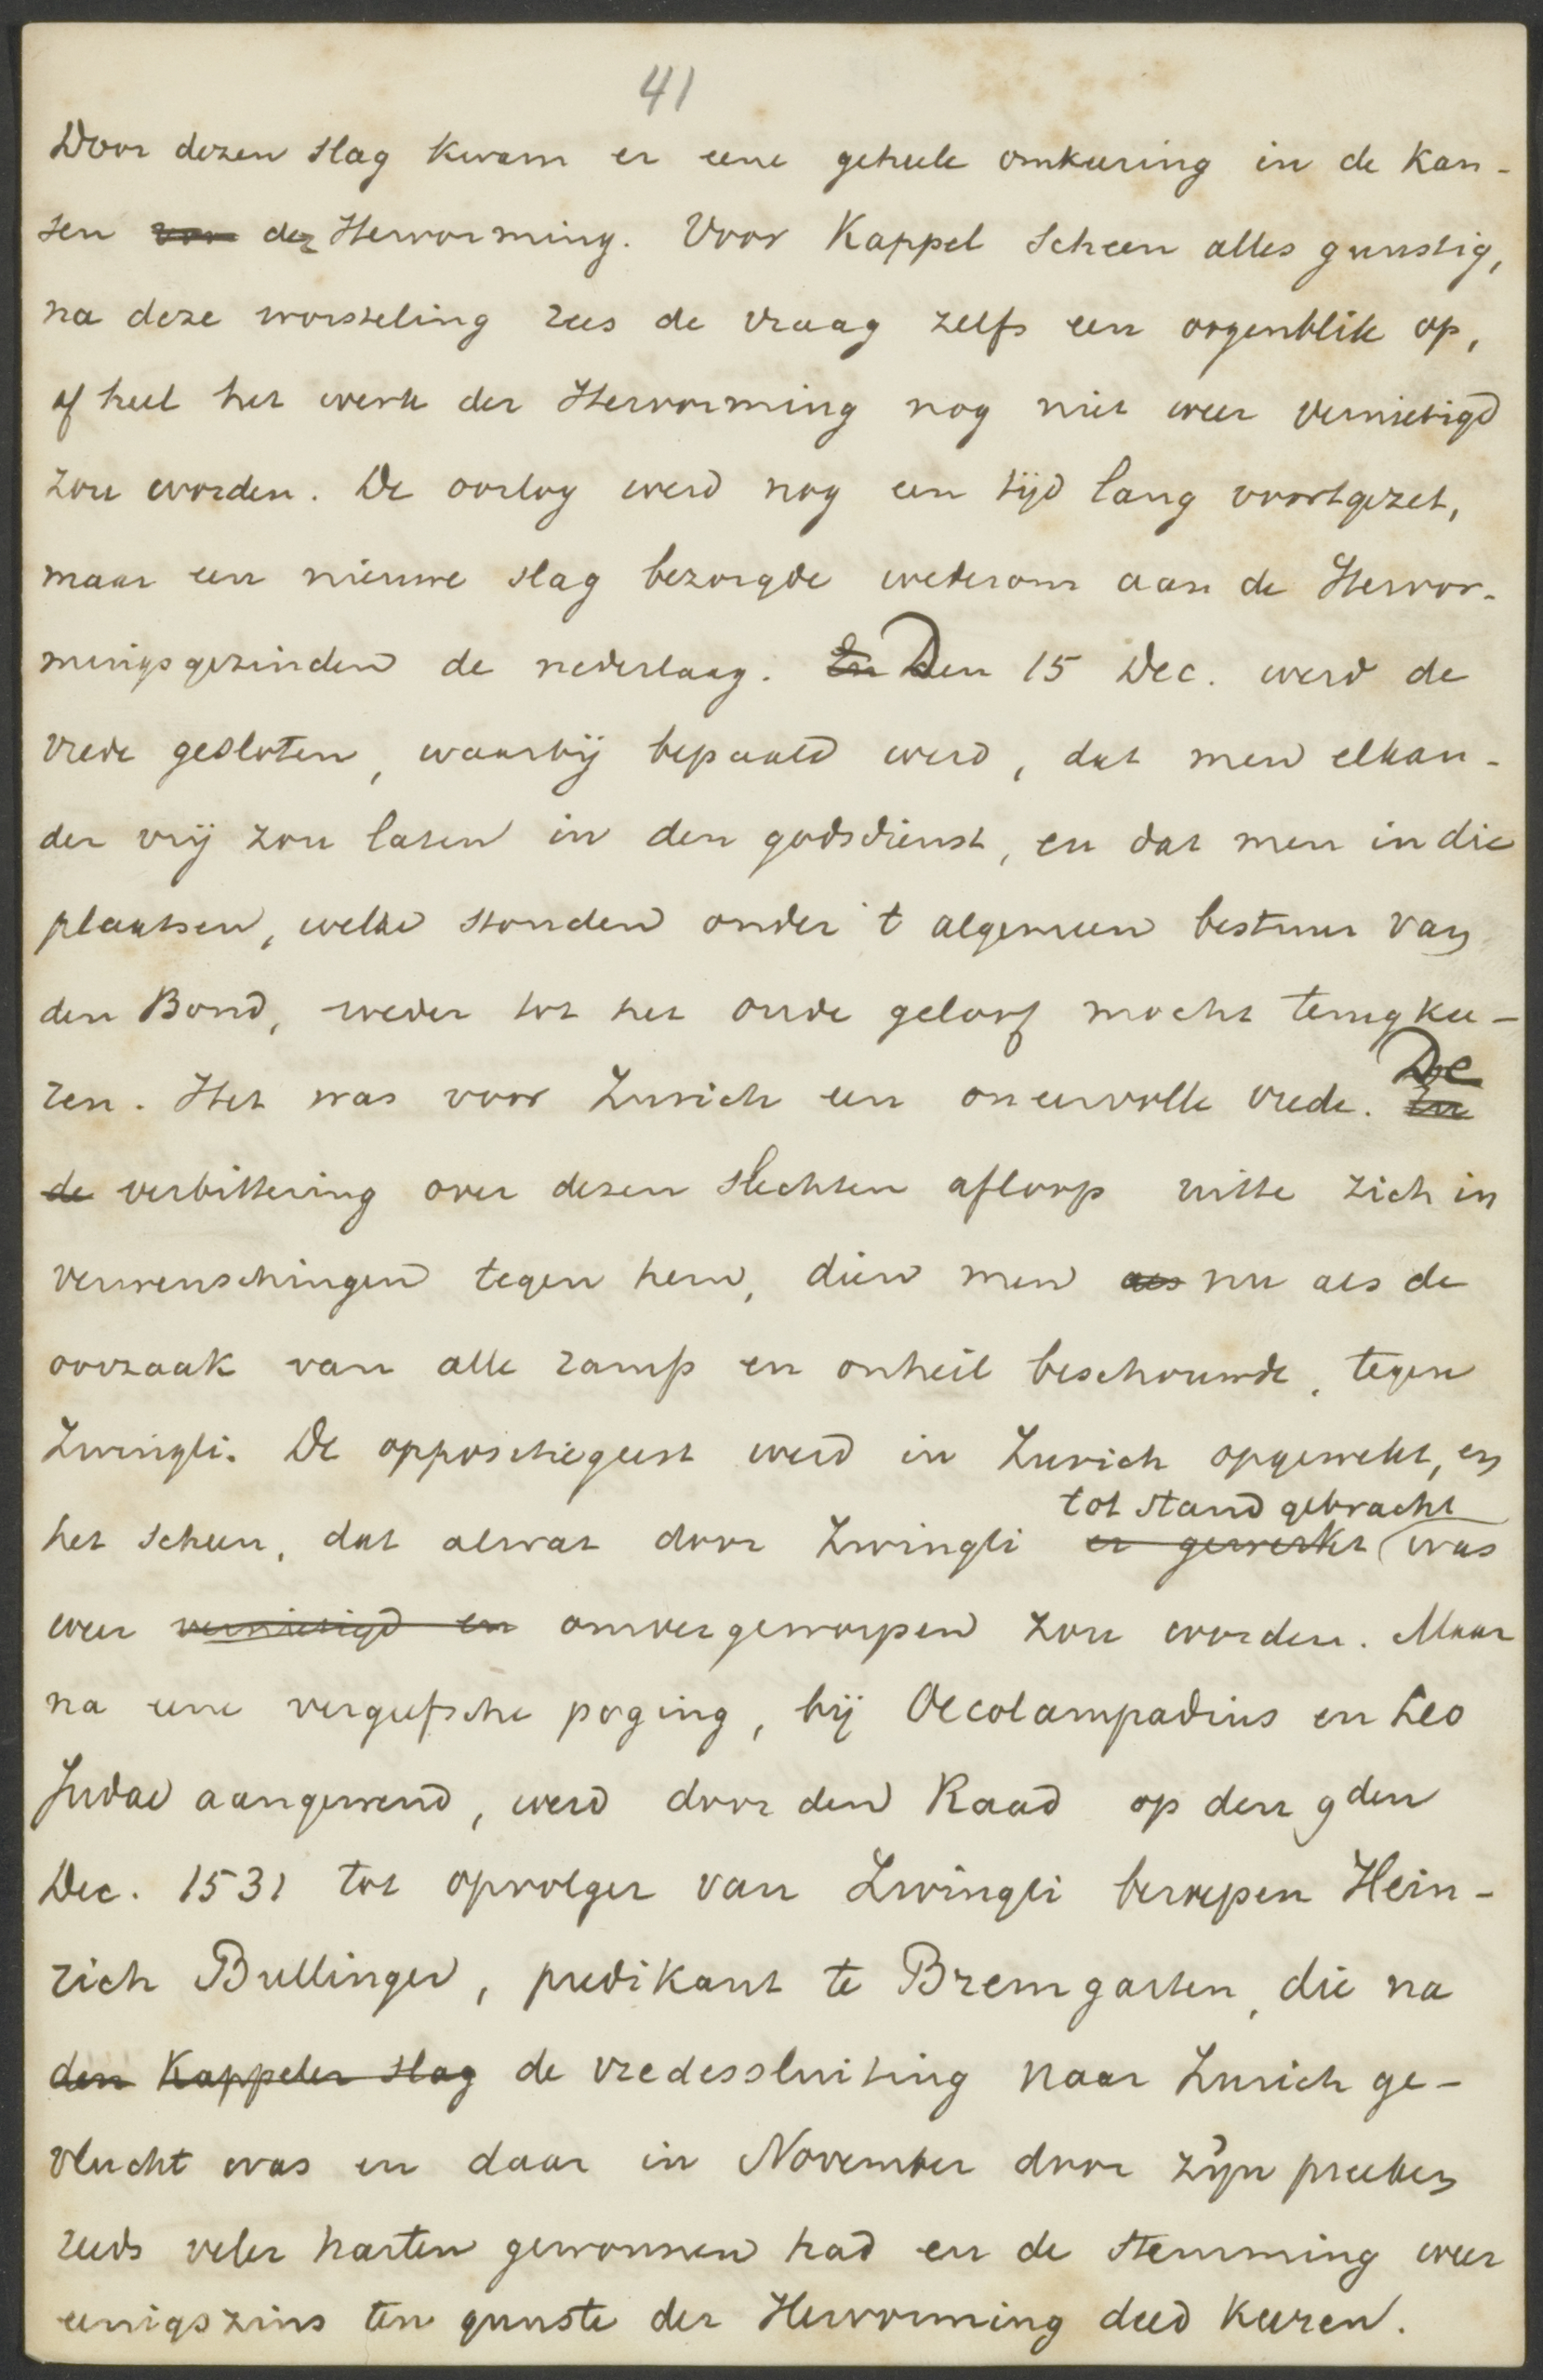 41
Door dezen slag kwam er eene geheele omkeering in de kan-
sen van der Hervorming. Voor Kappel scheen alles gunstig,
na deze worsteling rees de vraag zelfs een oogenblik op,
of heel het werk der Hervorming nog niet weer vernietigd
zou worden. De oorlog werd nog een tijd lang voortgezet,
maar een nieuwe slag bezorgde wederom aan de Hervor-
mingsgezinden de nederlaag. En Den 15 Dec. werd de
vrede gesloten, waarbij bepaald werd, dat men elkan-
der vrij zou laten in den godsdienst, en dat men in die
plaatsen, welke stonden onder 't algemeen bestuur van
den Bond, weder tot het oude geloof mocht terugkee-
ren. Het was voor Zurich een oneervolle vrede. De En
de verbittering over dezen slechten afloop uitte zich in
verwenschingen tegen hem, dien men als nu als de
oorzaak van alle ramp en onheil beschouwde, tegen
Zwingli. De oppositiegeest werd in Zurich opgewekt, en
tot stand gebracht
het scheen, dat alwat door Zwingli er gewerkt was
weer vernietigd en omvergeworpen zou worden. Maar
na eene vergeefsche poging, bij Oecolampadius en Leo
Judae aangewend, werd door den Raad op den 9den
Dec. 1531 tot opvolger van Zwingli beroepen Hein-
rich Bullinger, predikant te Bremgarten, die na
den Kappeler slag de vredessluiting naar Zurich ge-
vlucht was en daar in November door zijn preeken
reeds veler harten gewonnen had en de stemming weer
eenigszins ten gunste der Hervorming deed keeren.